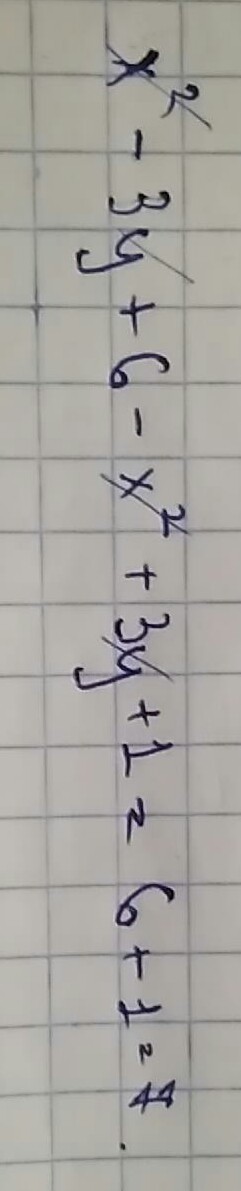 x² - 3y + 6 - x² + 3y + 1 = 6 + 1 = 7.